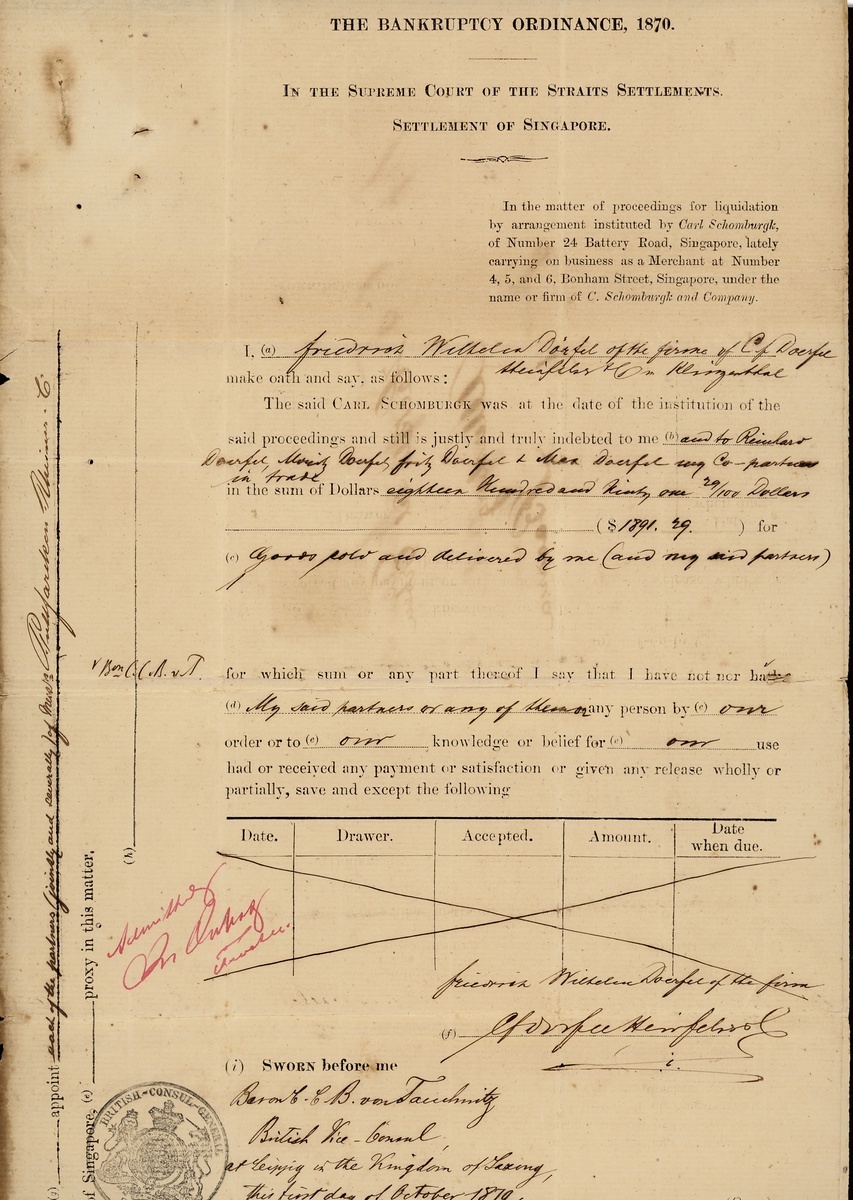 THE BANKRUPTCY ORDINANCE, 1870.
IN THE SUPREME COURT OF THE STRAITS SETTLEMENTS.
SETTLEMENT OF SINGAPORE.
In the matter of proceedings for liquidation
by arrangement instituted by Carl Schomburgk,
of Number 24 Battery Road, Singapore, lately
carrying on business as a Merchant at Number
4, 5, and 6, Bonham Street, Singapore, under the
name or firm of C. Schomburgk and Company.
I, (a) Friedrich Wilhelm Dörfel of the firme of C f Doerfel
make oath and say, as follows: Heinfelser & Co in Klingenthal
The said CARL SCHOMBURGK was at the date of the institution of the
said proceedings and still is justly and truly indebted to me (b) and to Reinhard
Doerfel Moritz Doerfel fritz Doerfel & Max Doerfel my Co-partners
in trade
in the sum of Dollars eighteen Hundred and Ninty one 29/100 Dollars
($1891. 29. ) for
(c) Goods sold and delivered by me (and my said partners)
for which sum or any part thereof I say that I have not nor have
(d) My said partners or any of them or any person by (e) our
order or to (e) our knowledge or belief for (e) our use
had or received any payment or satisfaction or given any release wholly or
partially, save and except the following
Date. Drawer. Accepted. Amount. Date when due.
Friedrich Wilhelm Doerfel of the firm
(f)
(i) SWORN before me
Baron C. C. B. von Tauchnitz
British Vice-Consul,
at Leipzig in the Kingdom of Saxony,
this first day of October 1879.
v Bon C. C. B. v. T.
(h)
Admitted
Trustee.
appoint each of the partners (jointly and severally) of Messrs
proxy in this matter.
of Singapore, (e)
BRITISH-CONSUL-GENERAL